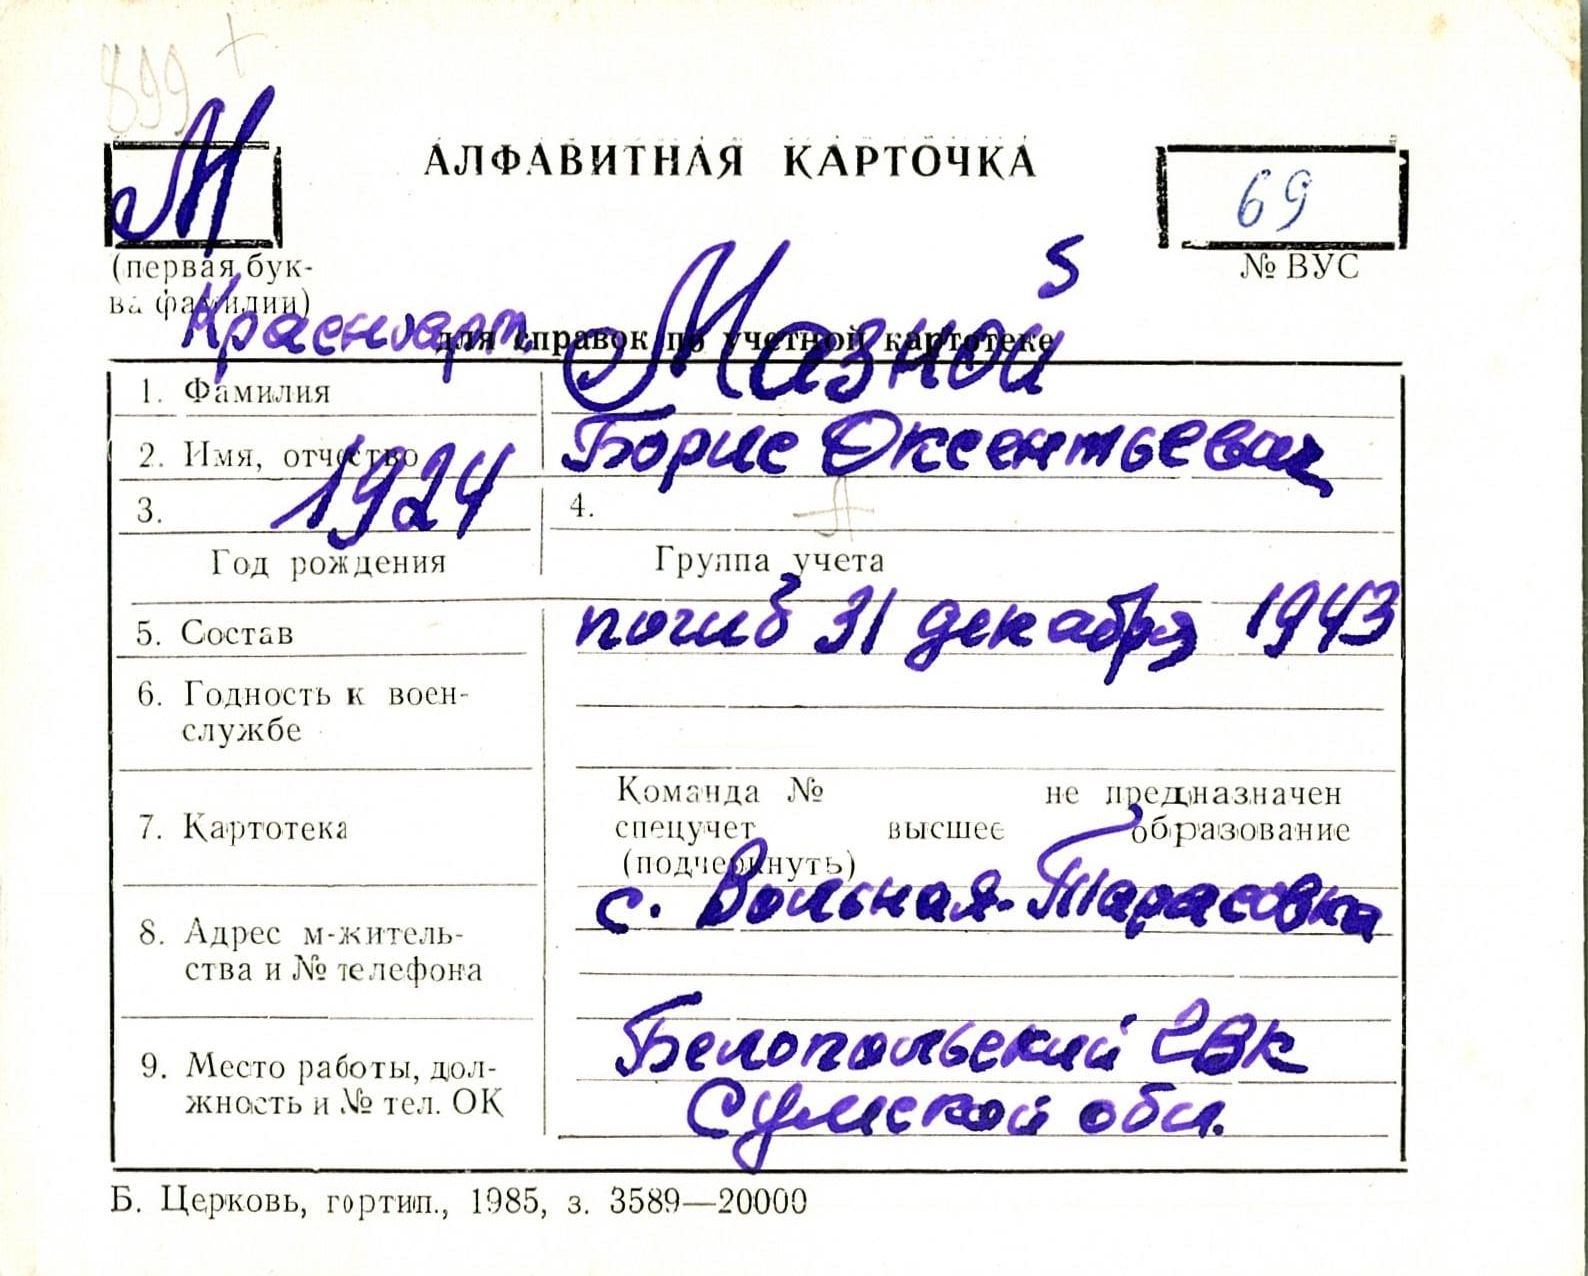 899 +
М
АЛФАВИТНАЯ КАРТОЧКА
69
(первая бук-
ва фамилии)
№ ВУС
5
Красноарм.
для справок по учетной картотеке
1. Фамилия Мазной
2. Имя, отчество Борис Оксентьевич
3. 1924 4.
Год рождения Группа учета
5. Состав погиб 31 декабря 1943
6. Годность к воен-
службе
Команда № не предназначен
7. Картотека спецучет высшее образование
(подчеркнуть)
с. Вольная-Тарасовка
8. Адрес м-житель-
ства и № телефона
Белопольский РВК
9. Место работы, дол-
жность и № тел. ОК Сумской обл.
Б. Церковь, гортип., 1985, з. 3589—20000